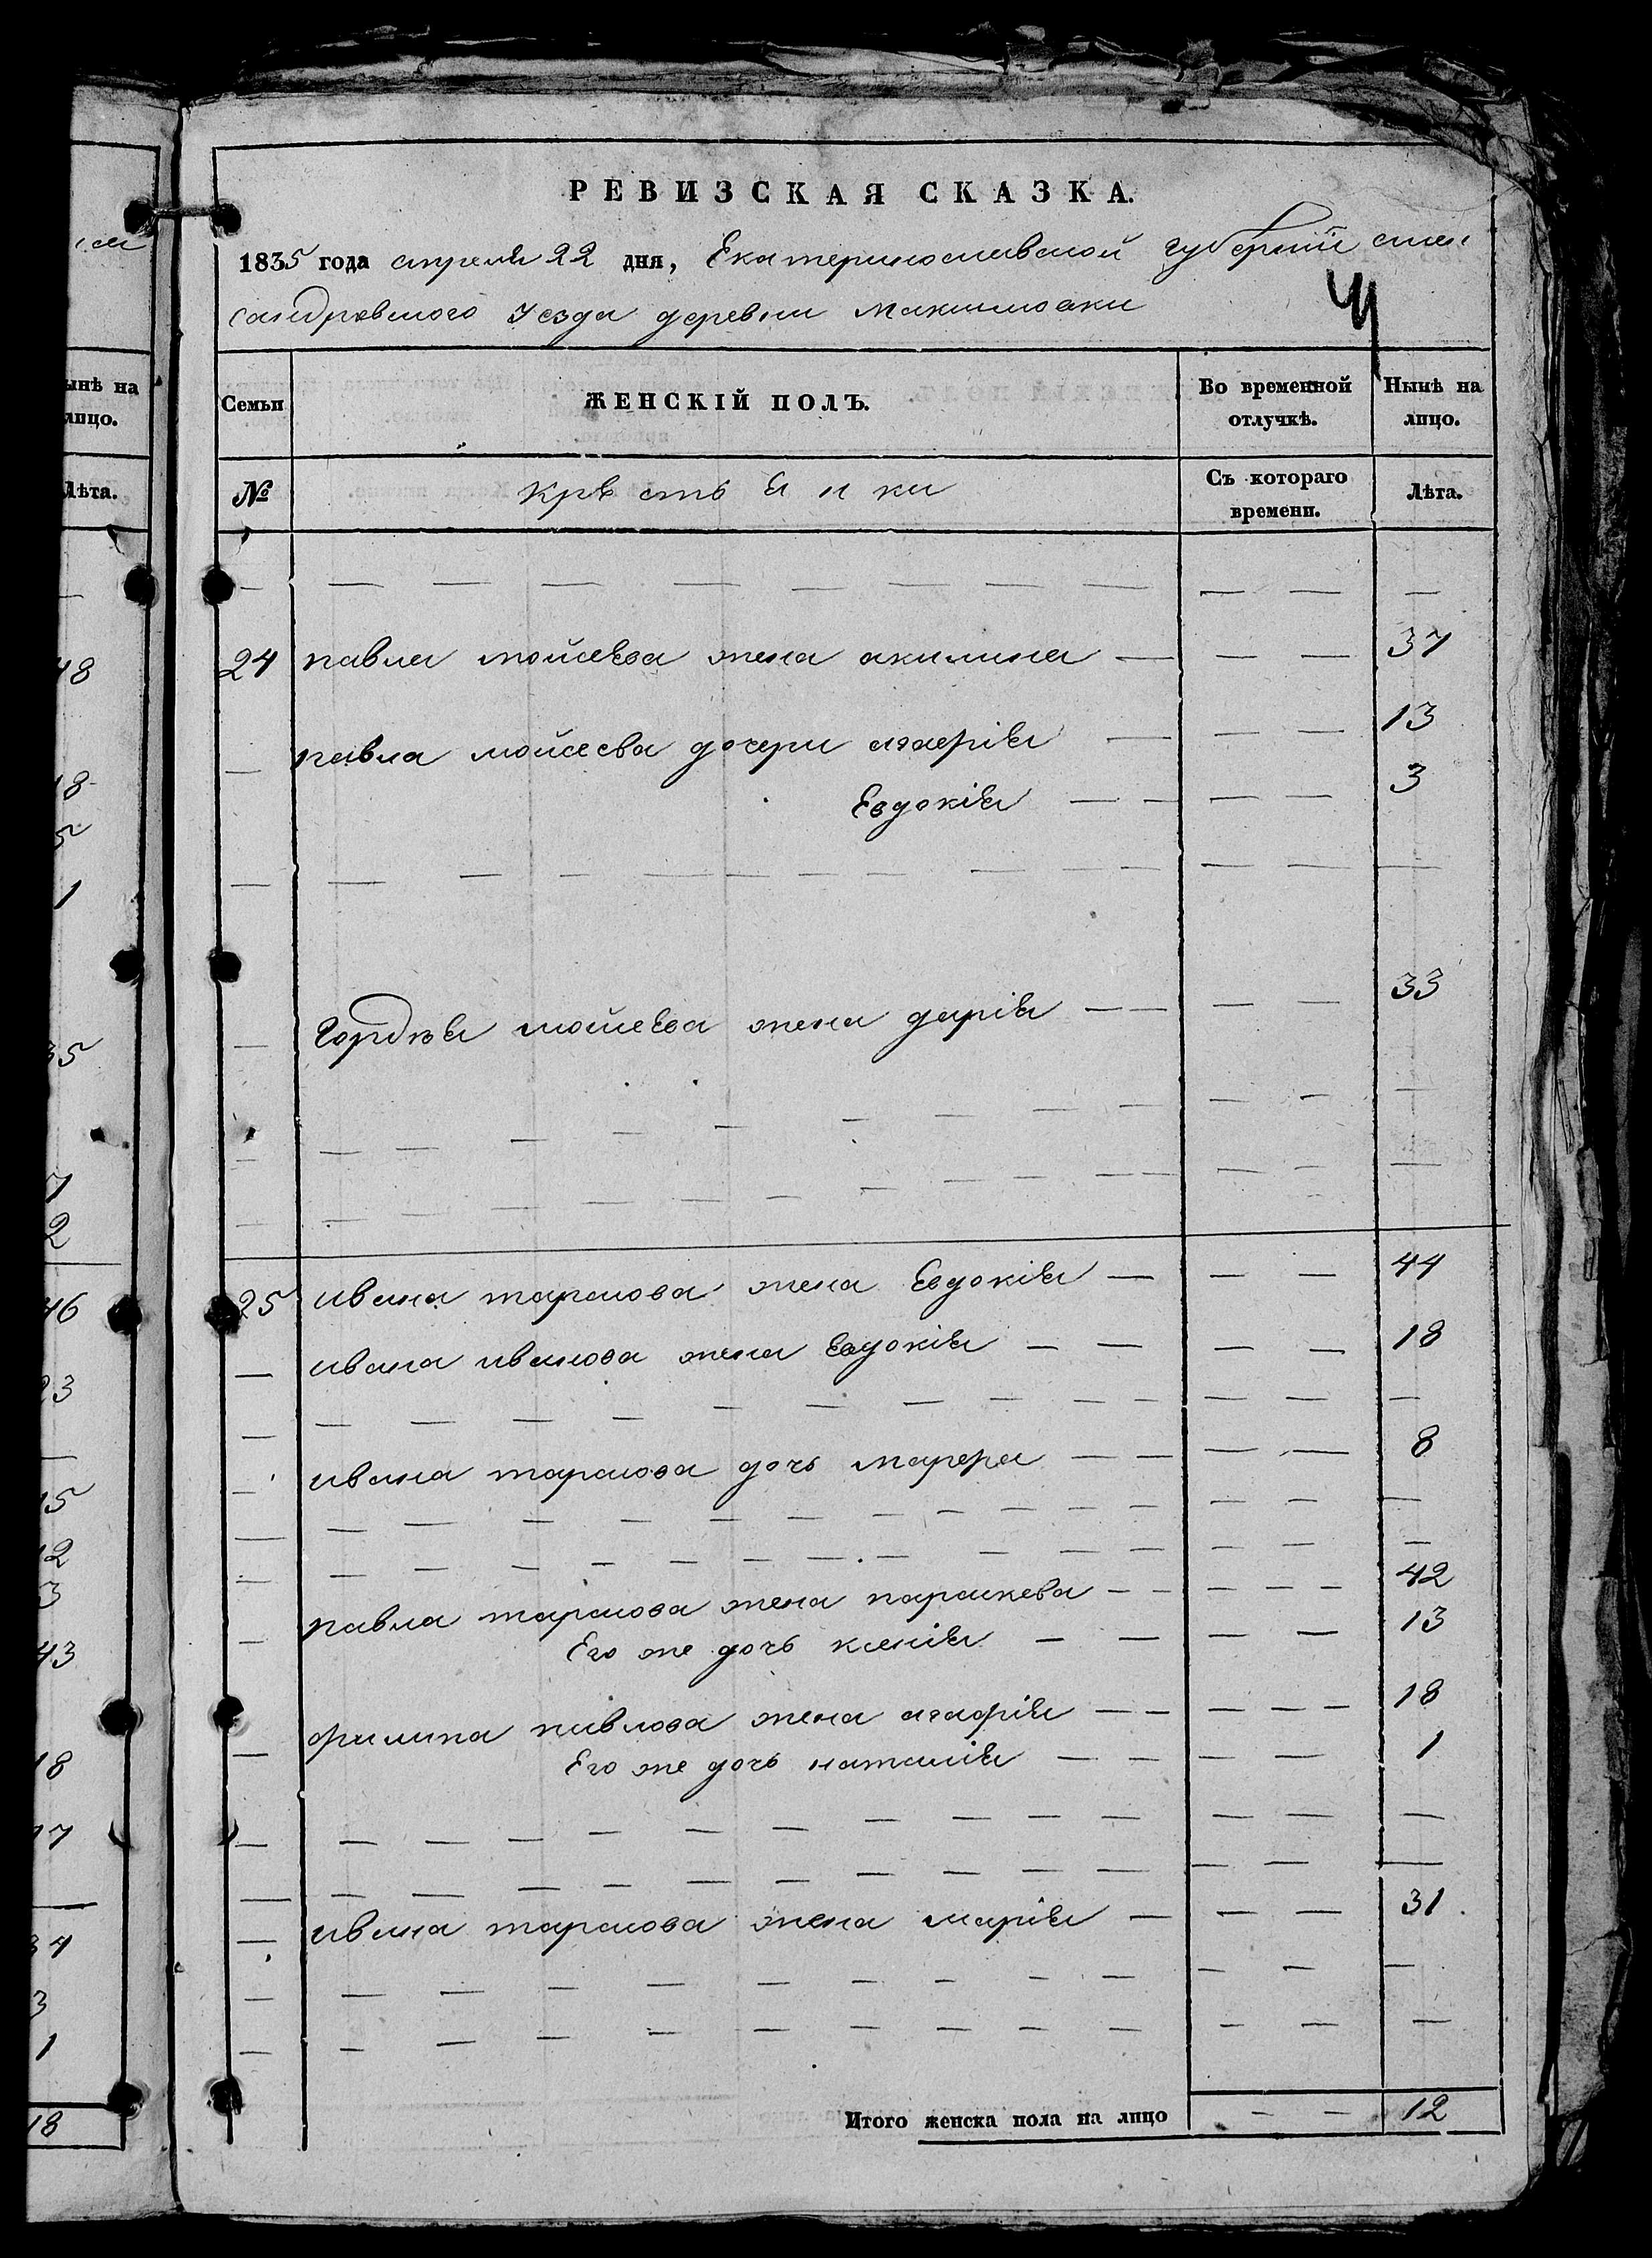 ϲаи
РЕВИЗСКАЯ СКАЗКА.
1835 года апреля 22 дня, Екатеринославской губернiи алек
сандровского уезда деревни Максимовки
Ч
ынѣ на
лицо.
Лѣта.
48
18
5
1
35
7
2
46
23
15
12
3
43
18
17
34
3
1
18
Семьи
ЖЕНСКІЙ ПОЛЪ.
Во временной
отлучкѣ.
Нынѣ на
лицо.
№
Кресть я н ки
Съ котораго
времени.
Лѣта.
24 павла мойсеева жена акилина — — — 37
— павла мойсеева дочери агафрiя — — — 13
Евдокiя — — — — 3
— гордѣя мойсеева жена дарiя — — — — 33
25 ивана тарасова жена Евдокiя — — — 44
— ивана иванова жена Евдокiя — — — — 18
— ивана тарасова дочь марфра — — — — 8
павла тарасова жена параскева — — — — — 42
— Его же дочь ксенiя — — — — 13
филипа павлова жена агафiя — — — — — 18
— Его же дочь наталiя — — — — 1
— ивана тарасова жена марiя — — — 31
Итого женска пола на лицо — — 12